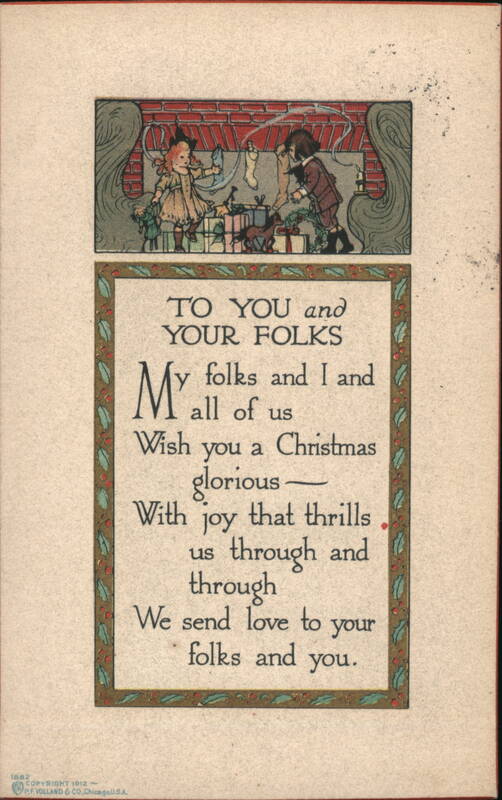 TO YOU and
YOUR FOLKS
My folks and I and
all of us
Wish you a Christmas
glorious —
With joy that thrills
us through and
through
We send love to your
folks and you.
1882
COPYRIGHT 1912 —
P.F. VOLLAND & CO., Chicago, U.S.A.